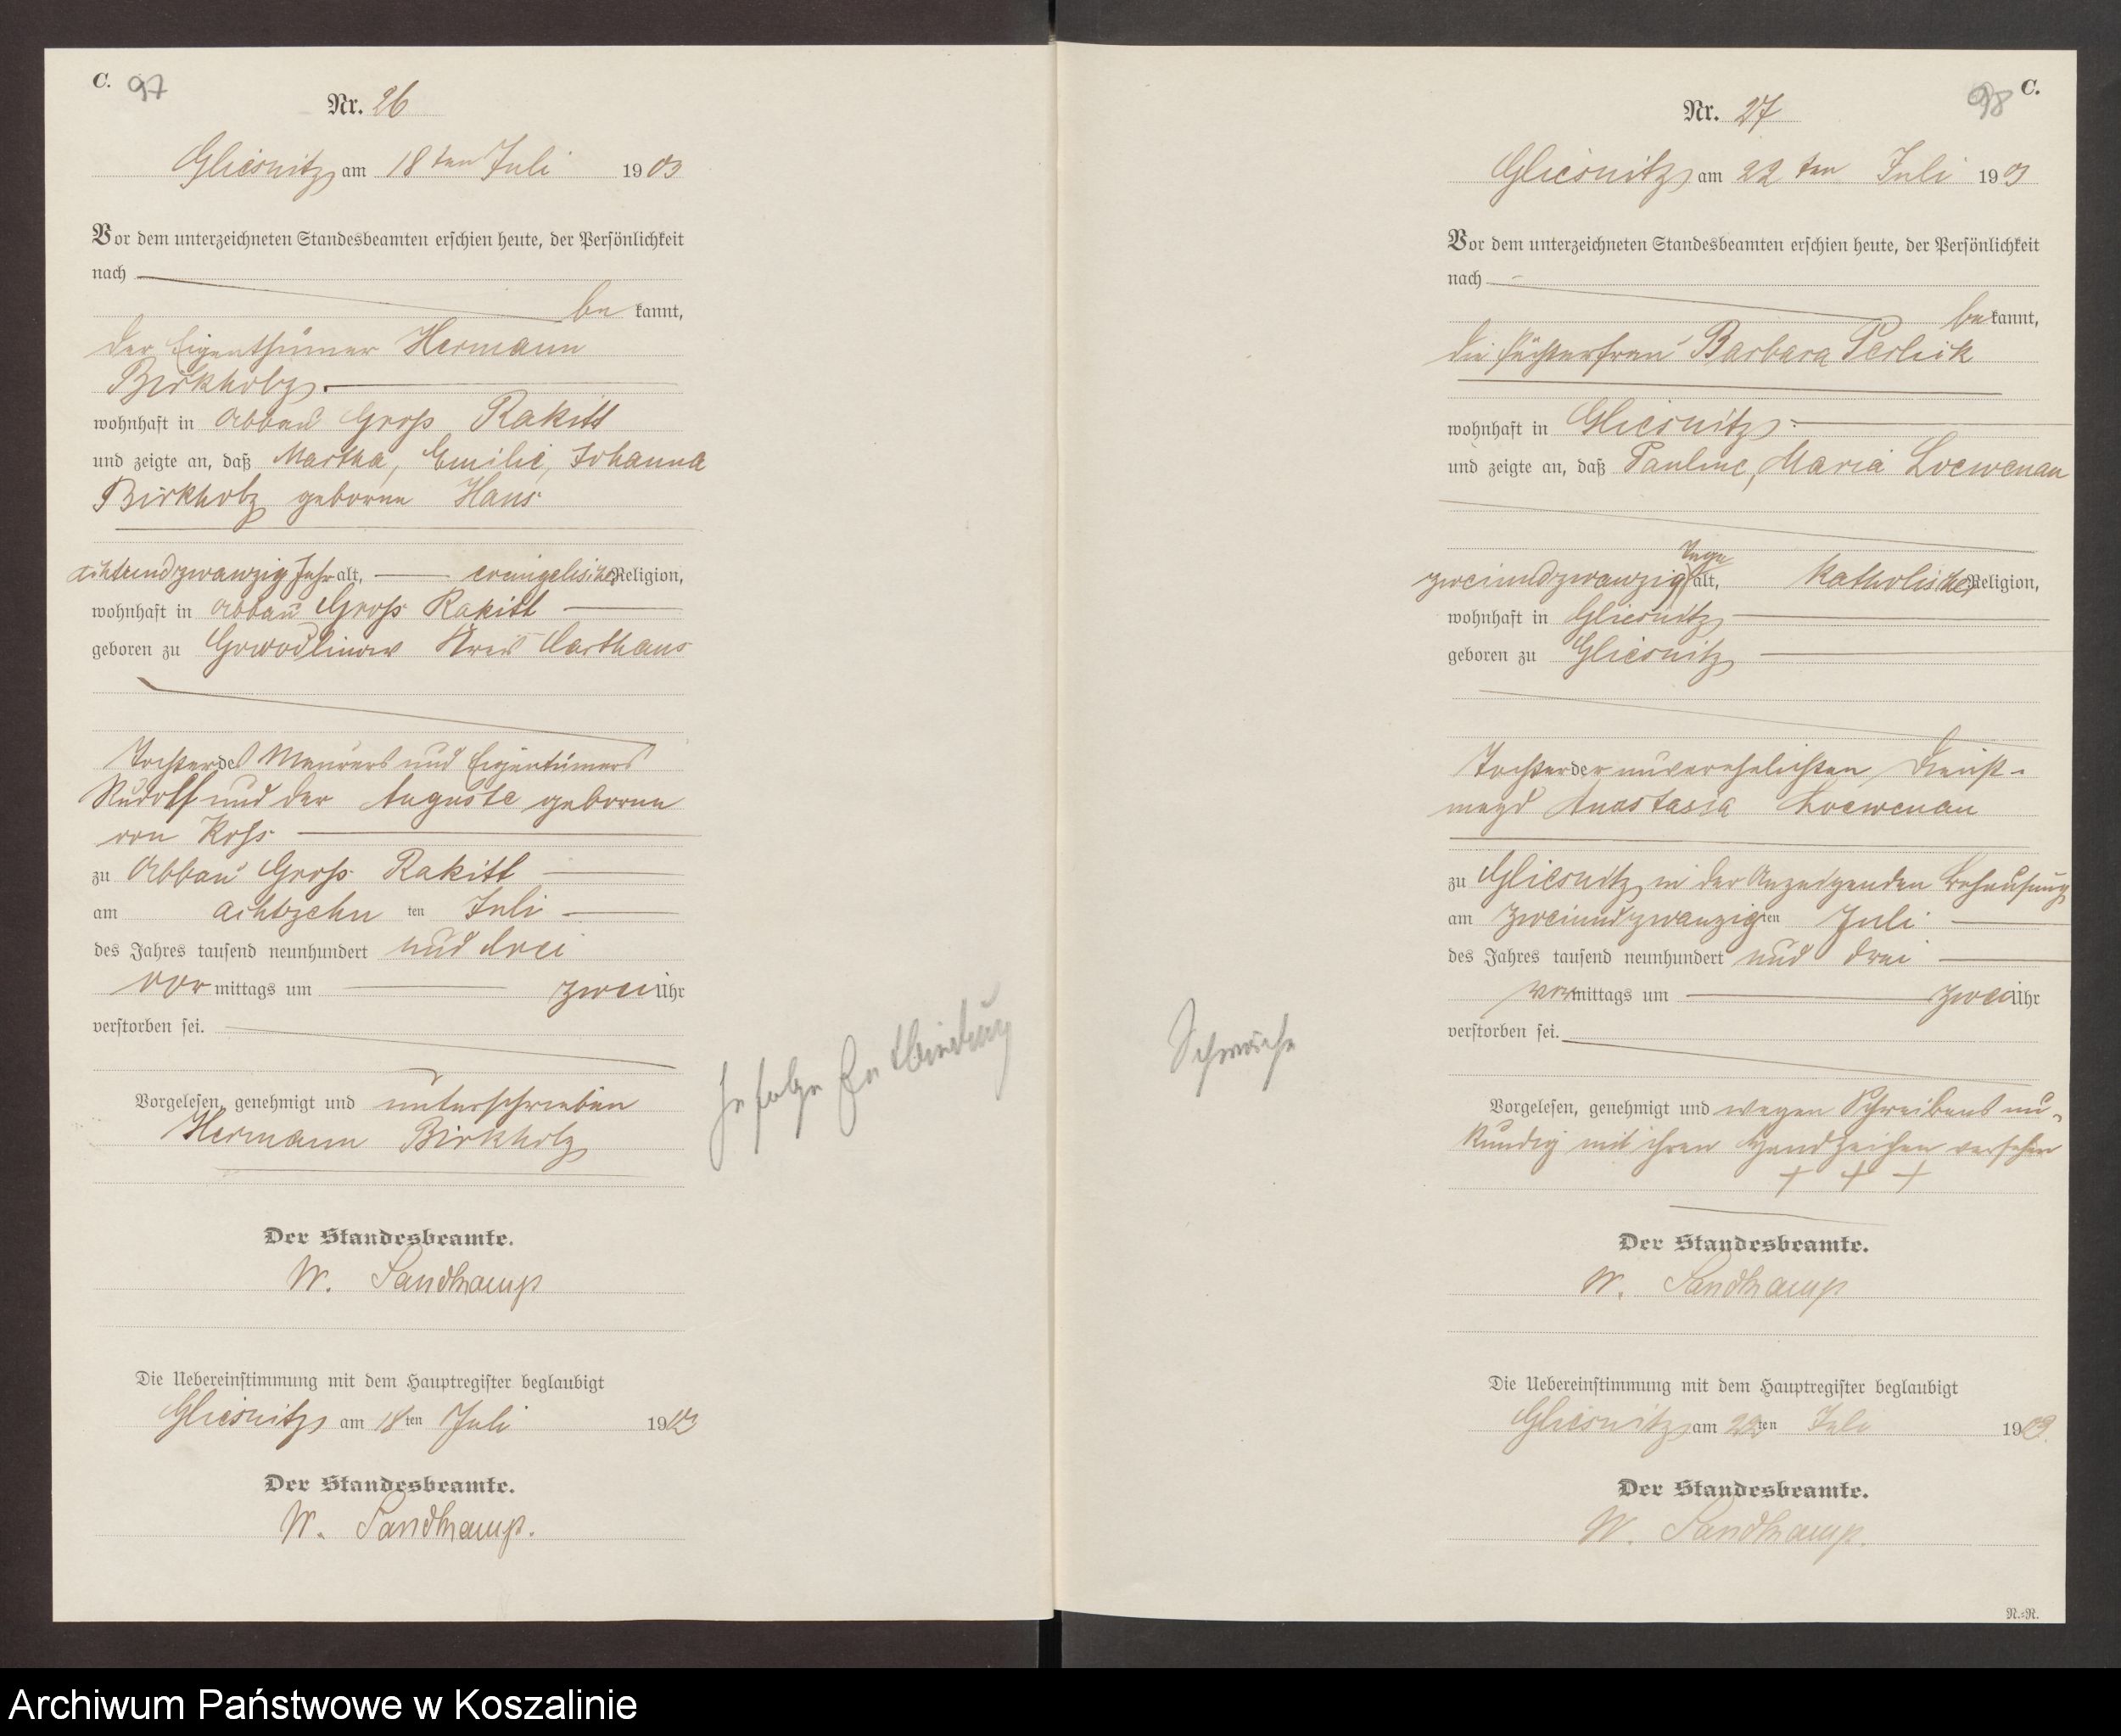 C. 97
Nr. 26
Gliesnitz am 18 ten Juli 1903
Vor dem unterzeichneten Standesbeamten erschien heute, der Persönlichkeit
nach
be kannt,
der Eigenthümer Hermann
Birkholz
wohnhaft in Abbau Gross Rakitt
und zeigte an, daß Martha, Emilie, Johanna
Birkholz geborne Hans
achtundzwanzig Jahr alt, evangelischer Religion,
wohnhaft in Abbau Gross Rakitt
geboren zu Gowodlinow Kreis Carthaus
Tochter des Maurers und Eigentümers
Rudolf und der Auguste geborne
von Koss
zu Abbau Gross Rakitt
am achtzehn ten Juli
des Jahres tausend neunhundert und drei
vor mittags um zwei Uhr
verstorben sei.
Vorgelesen, genehmigt und unterschrieben
Hermann Birkholz
Der Standesbeamte.
W. Sandkamp
Die Uebereinstimmung mit dem Hauptregister beglaubigt
Gliesnitz am 18 ten Juli 1903
Der Standesbeamte.
W. Sandkamp.
Infolge Entbindung
98 C.
Nr. 27
Gliesnitz am 22 ten Juli 1903
Vor dem unterzeichneten Standesbeamten erschien heute, der Persönlichkeit
nach
be kannt,
die Barbara Perleik
wohnhaft in Gliesnitz
und zeigte an, daß Pauline, Maria Loewenau
Tage
zweiundzwanzig alt, katholischer Religion,
wohnhaft in Gliesnitz
geboren zu Gliesnitz
Tochter der unverehelichten Dienst-
magd Anastasia Loewenau
zu Gliesnitz in der Anzeigenden Behausung
am zweiundzwanzig ten Juli
des Jahres tausend neunhundert und drei
vor mittags um zwei Uhr
verstorben sei.
Schwäche
Vorgelesen, genehmigt und wegen Schreibens un-
kundig mit ihren Handzeichen versehen
+ + +
Der Standesbeamte.
W. Sandkamp
Die Uebereinstimmung mit dem Hauptregister beglaubigt
Gliesnitz am 22 ten Juli 1903.
Der Standesbeamte.
W. Sandkamp.
N.=N.
Archiwum Państwowe w Koszalinie